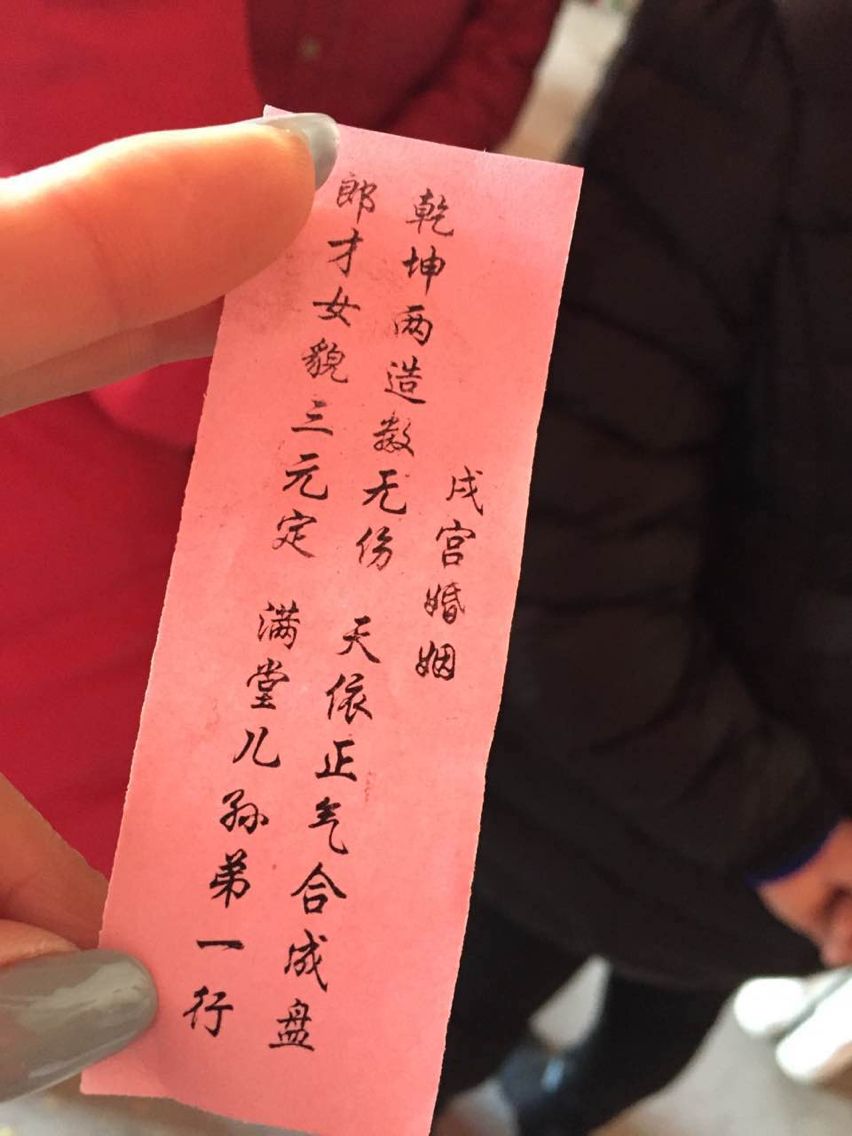 戌宫婚姻
乾坤两造数无伤 天依正气合成盘
郎才女貌三元定 满堂儿孙弟一行